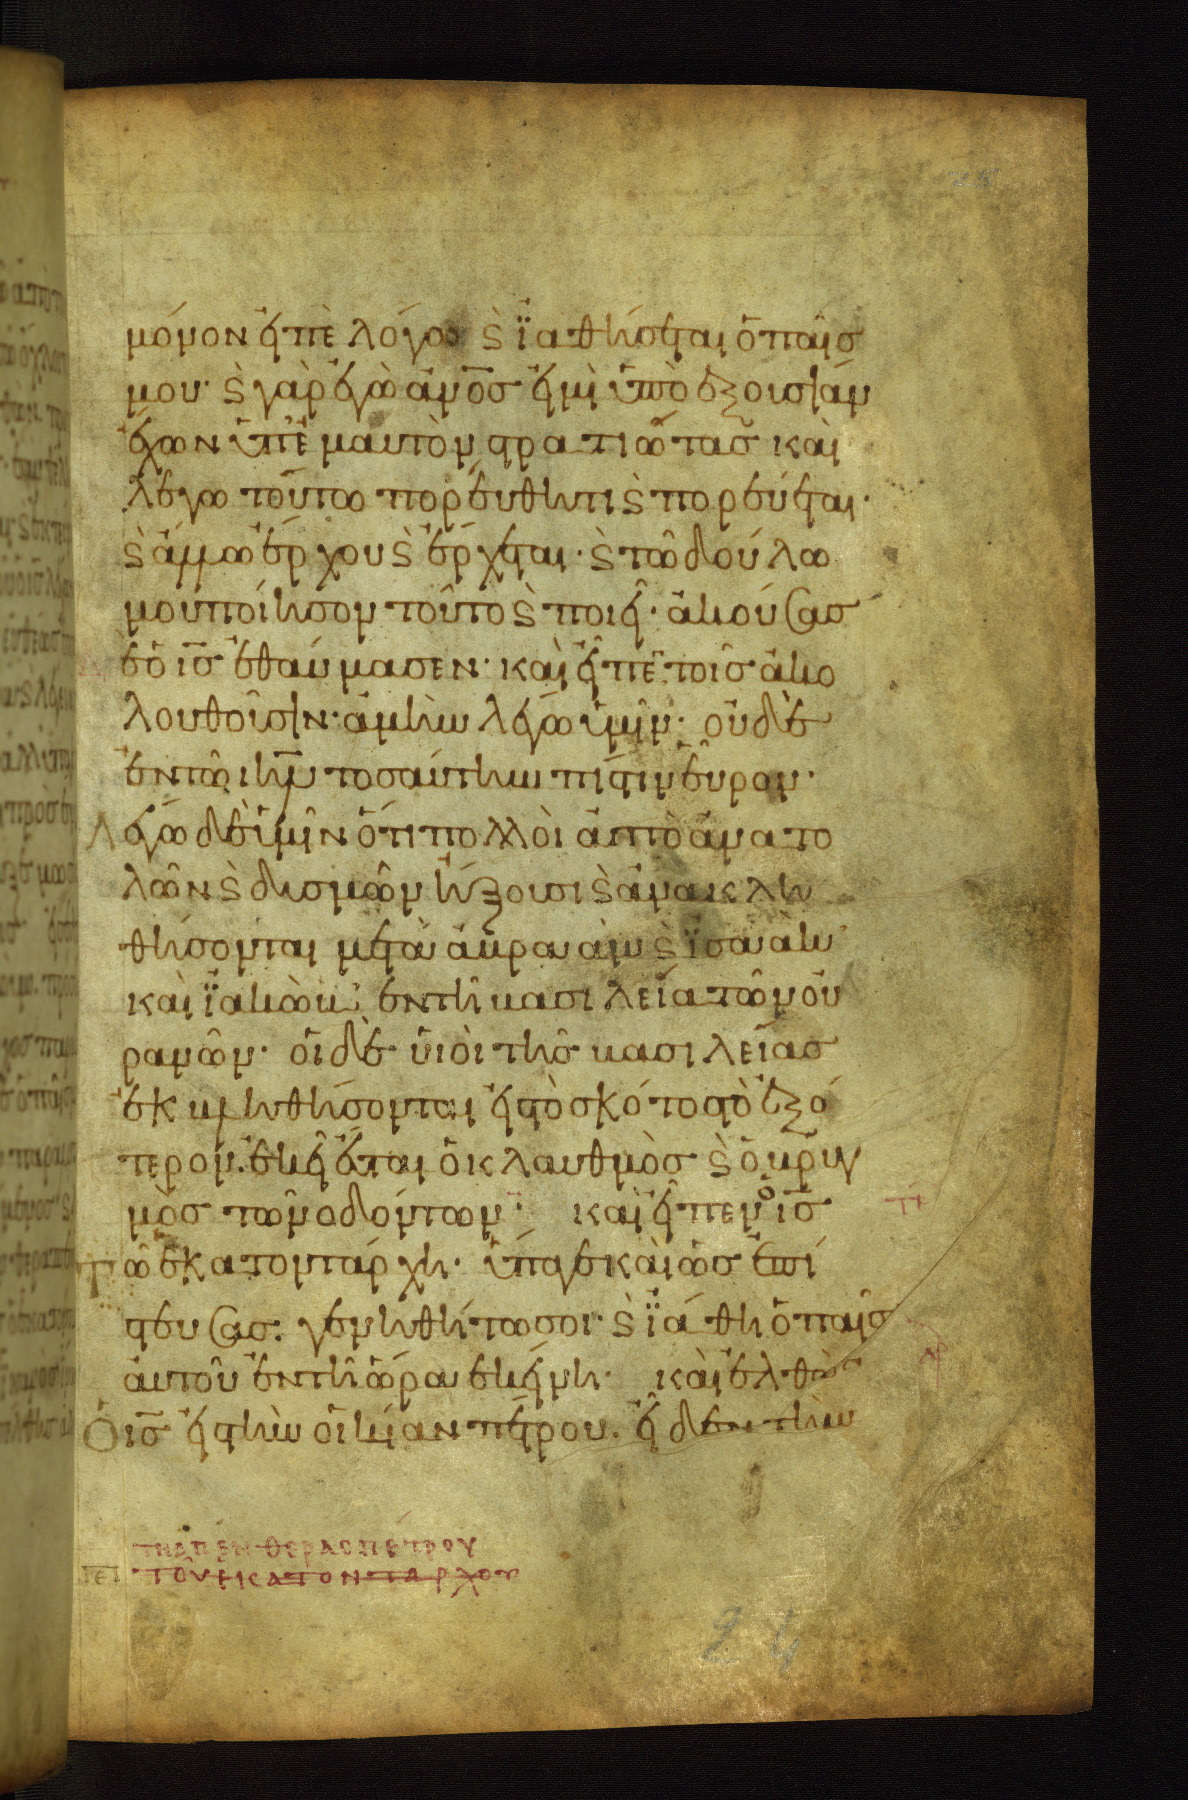 μόνον εἰπὲ λόγω ϗ ἰαθήσεται ὁ παῖς
μου· ϗ γὰρ ἐγὼ ἄνος εἰμὶ ὑπὸ ἐξουσίαν
ἔχων ὑπ' ἐμαυτὸν στρατιώτας καὶ
λέγω τούτω πορεύθητι ϗ πορεύεται·
ϗ ἄλλω ἔρχου ϗ ἔρχεται· ϗ τῶ δούλω
μου ποίησον τοῦτο ϗ ποιεῖ· ἀκούσας
δὲ ὁ ις ἐθαύμασεν· καὶ εἶπε τοῖς ἀκο
λουθοῦσιν· ἀμὴν λέγω ὑμῖν· οὐδὲ
ἐν τῶ ιηλ τοσαύτην πίστιν εὗρον·
Λέγω δὲ ὑμῖν ὅτι πολλοὶ ἀπὸ ἀνατο
λῶν ϗ δυσμῶν ἥξουσι ϗ ἀνακλη
θήσονται μετὰ ἀβραὰμ ϗ ἰσαὰκ
καὶ ἰακὼβ· ἐν τῆ βασιλεία τῶν οὐ
ρανῶν· οἱ δὲ υἱοὶ τῆς βασιλείας
ἐκβληθήσονται εἰς τὸ σκότος τὸ ἐξώ
τερον· ἐκεῖ ἔσται ὁ κλαυθμὸς ϗ ὁ βρυγ
μὸς τῶν ὀδόντων· καὶ εἶπεν ὁ ις
Τῶ ἑκατοντάρχη· ὕπαγε καὶ ὡς ἐπί
στευσας· γενηθήτω σοι· ϗ ἰάθη ὁ παῖς
αὐτοῦ ἐν τῆ ὥρα ἐκείνη· καὶ ἐλθὼν
Ὁ ις εἰς τὴν οἰκίαν πέτρου· εἶδεν τὴν
τῆς πενθερᾶς πέτρου
τοῦ ἑκατοντάρχου
24